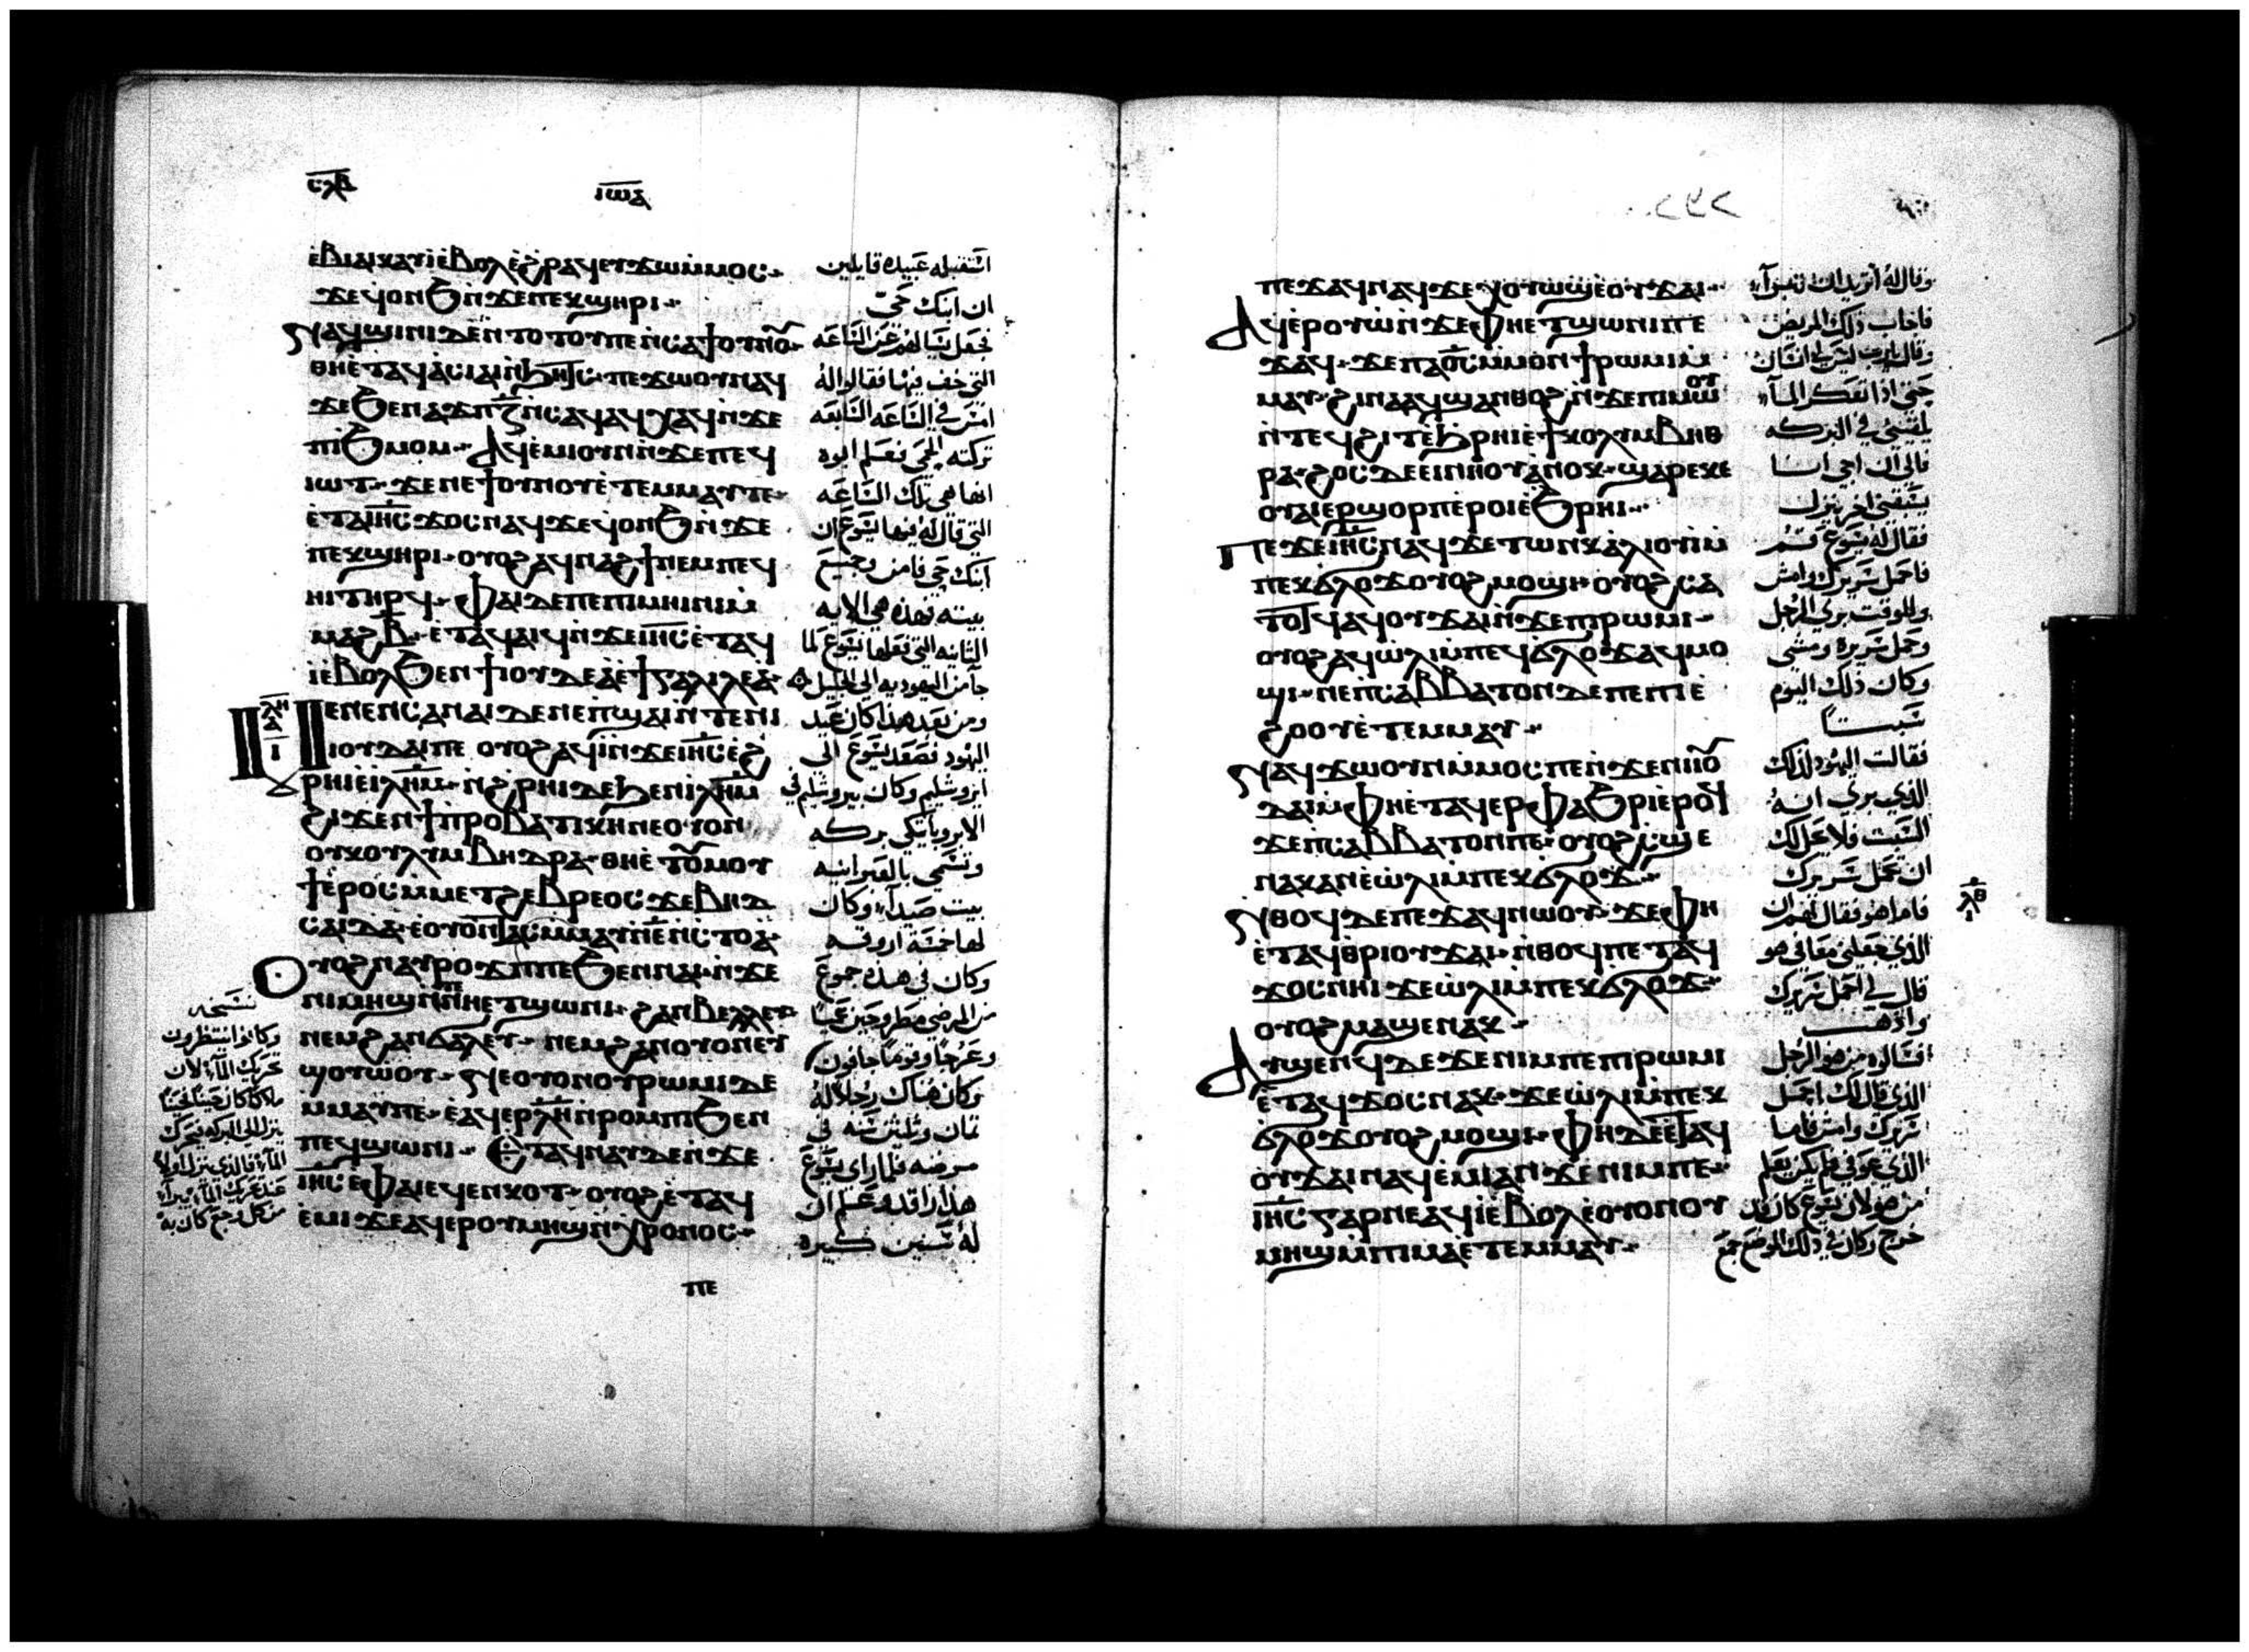 ⲥⲗⲃ
ⲓⲱⲁ
ⲉ̀ⲃⲓⲁⲓⲕ ⲁⲩⲓ̀ ⲉ̀ⲃⲟⲗ ⲉ̀ϩⲣⲁϥ ⲉⲩϫⲱ ⲙ̀ⲙⲟⲥ
ϫⲉ ϥⲟⲛϧ ⲛ̀ϫⲉ ⲡⲉⲕϣⲏⲣⲓ
ⲛⲁϥϣⲓⲛⲓ ⲇⲉⲛ ⲧⲟⲧⲟⲩ ⲡⲉ ⲛ̀ⲥⲁ ϯⲟⲩⲛⲟ
ⲑⲏⲉ̀ⲧⲁϥⲁ̀ⲥⲓⲁⲓ ⲛ̀ϧⲏⲧⲥ ⲡⲉϫⲱⲟⲩ ⲛⲁϥ
ϫⲉ ϧⲉⲛ ⲁϫⲡ ⲍ ⲛ̀ⲥⲁϥ ⲁϥⲭⲁϥ ⲛ̀ϫⲉ
ⲡⲓϧⲙⲟⲙ ⲁϥⲉ̀ⲙⲓ ⲟⲩⲛ ⲛ̀ϫⲉ ⲡⲉϥ
ⲓⲱⲧ ϫⲉ ⲛⲉ ϯⲟⲩⲛⲟⲩ ⲉ̀ⲧⲉⲙⲙⲁⲩ ⲧⲉ
ⲉ̀ⲧⲁ ⲓⲏⲥ ϫⲟⲥ ⲛⲁϥ ϫⲉ ϥⲟⲛϧ ⲛ̀ϫⲉ
ⲡⲉⲕϣⲏⲣⲓ ⲟⲩⲟϩ ⲁϥⲛⲁϩϯ ⲛⲉⲙ ⲡⲉϥ
ⲏⲓ ⲧⲏⲣϥ ⲫⲁⲓ ⲇⲉ ⲡⲉ ⲡⲓⲙⲏⲓⲛⲓ ⲙ̀
ⲙⲁϩⲃ ⲉ̀ⲧⲁϥⲁⲓϥ ⲛ̀ϫⲉ ⲓⲏⲥ ⲉ̀ⲧⲁϥ
ⲓ̀ ⲉ̀ⲃⲟⲗ ϧⲉⲛ ϯⲓⲟⲩⲇⲉⲁ̀ ⲉ̀ϯⲅⲁⲗⲓⲗⲉⲁ̀
ⲡⲉⲛⲉⲛⲥⲁ ⲛⲁⲓ ⲇⲉ ⲛⲉ ⲡ̀ϣⲁⲓ ⲛ̀ⲧⲉ ⲛⲓ
ⲓⲟⲩⲇⲁⲓ ⲡⲉ ⲟⲩⲟϩ ⲁϥⲓ̀ ⲛ̀ϫⲉ ⲓⲏⲥ ⲉ̀ϩ
ⲣⲏⲓ ⲉ̀ⲓⲗⲏⲙ ⲛ̀ϩⲣⲏⲓ ⲇⲉ ϧⲉⲛ ⲓⲗⲏⲙ
ϩⲓϫⲉⲛ ϯⲡⲣⲟⲃⲁⲧⲓⲕⲏ ⲛⲉ ⲟⲩⲟⲛ
ⲟⲩⲕⲟⲩⲗⲩⲙⲃⲏⲇⲣⲁ ⲑⲏⲉ̀ⲧⲟⲩⲙⲟⲩ
ϯ ⲉ̀ⲣⲟⲥ ⲙ̀ⲙⲉⲧϩⲉⲃⲣⲉⲟⲥ ϫⲉ ⲃⲏⲇ
ⲥⲁⲓⲇⲁ ⲉ̀ⲟⲩⲟⲛⲧⲁⲥ ⲙ̀ⲙⲁⲩ ⲛ̀ⲉ̄ ⲛ̀ⲥⲧⲟⲁ̀
ⲟⲩⲟϩ ⲛⲁⲩⲣⲟϫⲡ ⲡⲉ ϧⲉⲛ ⲛⲁⲓ ⲛ̀ϫⲉ
ⲡⲓⲙⲏϣ ⲛ̀ⲧⲉ ⲛⲏⲉⲧϣⲱⲛⲓ ϩⲁⲛⲃⲉⲗⲗⲉⲩ
ⲛⲉⲙ ϩⲁⲛϭⲁⲗⲉⲩ ⲛⲉⲙ ϩⲁⲛⲟⲩⲟⲛ ⲉⲩ
ϣⲟⲩⲱⲟⲩ ⲛⲉ ⲟⲩⲟⲛ ⲟⲩⲣⲱⲙⲓ ⲇⲉ
ⲙ̀ⲙⲁⲩ ⲡⲉ ⲉ̀ⲁϥⲉⲣ ⲗⲏ ⲛ̀ⲣⲟⲙⲡⲓ ϧⲉⲛ
ⲡⲉϥϣⲱⲛⲓ ⲉⲧⲁϥⲛⲁⲩ ⲇⲉ ⲛ̀ϫⲉ
ⲓⲏⲥ ⲉ̀ⲫⲁⲓ ⲉϥⲉⲛⲕⲟⲧ ⲟⲩⲟϩ ⲉ̀ⲧⲁϥ
ⲉ̀ⲙⲓ ϫⲉ ⲁϥⲉⲣ ⲟⲩⲙⲏϣ ⲛ̀ⲭⲣⲟⲛⲟⲥ
ⲡⲉ
استقبله عبيده قايلين
ان ابنك حي
فجعل يسالهم عن الساعه
التي خف فيها فقالوا له
امس في الساعه السابعه
تركته الحمى فعلم ابوه
انها هي تلك الساعه
التي قال له فيها يسوع ان
ابنك حي فامن وجميع
بيته فهذه هي الايه
الثانيه التي فعلها يسوع لما
جا من اليهوديه الى الجليل
ومن بعد هذا كان عيد
اليهود فصعد يسوع الى
ايروشليم وكان بيروشليم في
الابروباتيكي بركه
وتسمى بالعبرانيه
بيت صيدا وكان
لها خمسة اروقه
وكان في هذه جموع
من المرضى مطروحين عميا
وعرجا وقوما جافون
وكان هناك رجلا له
ثمان وثلثين سنه في
مرضه فلما راى يسوع
هذا راقد وعلم ان
له سنين كثيره
نسخه
وكانوا ينتظرون
تحريك الما لان
ملاكا كان حينا فحينا
ينزل الى البركه فيحرك
الما فالذي ينزل اولا
عند تحريك الما يبرا
من كل وجع كان به
ⲗⲏ
ⲁ
ⲓ
ⲡⲉϫⲁϥ ⲛⲁϥ ϫⲉ ⲭⲟⲩⲱϣ ⲉ̀ⲟⲩϫⲁⲓ
ⲁϥⲉ̀ⲣⲟⲩⲱ̀ ⲛ̀ϫⲉ ⲫⲏⲉⲧϣⲱⲛⲓ ⲡⲉ
ϫⲁϥ ϫⲉ ⲡⲁⲟ̅ⲥ̅ ⲙ̀ⲙⲟⲛϯ ⲣⲱⲙⲓ ⲙ̀
ⲙⲁⲩ ϩⲓⲛⲁ ⲁϥϣⲁⲛⲑⲟϩ ⲛ̀ϫⲉ ⲡⲓⲙⲱⲟⲩ
ⲛ̀ⲧⲉϥϩⲓⲧ ⲉ̀ϧⲣⲏⲓ ⲉ̀ϯⲕⲟⲗⲩⲙⲃⲏⲑ
ⲣⲁ ϩⲟⲥ ⲇⲉ ⲉⲓⲛⲏⲟⲩ ⲁ̀ⲛⲟⲕ ϣⲁⲣⲉ ⲕⲉ
ⲟⲩⲁⲓ ⲉⲣϣⲟⲣⲡ ⲉ̀ⲣⲟⲓ ⲉ̀ϧⲣⲏⲓ
ⲡⲉϫⲉ ⲓⲏⲥ ⲛⲁϥ ϫⲉ ⲧⲱⲛⲕ ⲁ̀ⲗⲓⲟⲩⲓ̀ ⲙ̀
ⲡⲉⲕϭⲗⲟϫ ⲟⲩⲟϩ ⲙⲟϣⲓ ⲟⲩⲟϩ ⲥⲁ
ⲧⲟⲧϥ ⲁϥⲟⲩϫⲁⲓ ⲛ̀ϫⲉ ⲡⲓⲣⲱⲙⲓ
ⲟⲩⲟϩ ⲁϥⲱ̀ⲗⲓ ⲙ̀ⲡⲉϥϭⲗⲟϫ ⲁϥⲙⲟ
ϣⲓ ⲛⲉ ⲡ̀ⲥⲁⲃⲃⲁⲧⲟⲛ ⲇⲉ ⲡⲉ ⲡⲓⲉ̀
ϩⲟⲟⲩ ⲉ̀ⲧⲉⲙⲙⲁⲩ
ⲛⲁⲩϫⲱ ⲟⲩⲛ ⲙ̀ⲙⲟⲥ ⲡⲉ ⲛ̀ϫⲉ ⲛⲓⲓⲟⲩ
ⲇⲁⲓ ⲙ̀ⲫⲏⲉ̀ⲧⲁϥⲉⲣⲫⲁϧⲣⲓ ⲉ̀ⲣⲟϥ
ϫⲉ ⲡ̀ⲥⲁⲃⲃⲁⲧⲟⲛ ⲡⲉ ⲟⲩⲟϩ ⲥ̀ϣⲉ
ⲛⲁⲕ ⲁⲛ ⲉ̀ⲱ̀ⲗⲓ ⲙ̀ⲡⲉⲕϭⲗⲟϫ
ⲛⲑⲟϥ ⲇⲉ ⲡⲉϫⲁϥ ⲛⲱⲟⲩ ϫⲉ ⲫⲏ
ⲉ̀ⲧⲁϥⲑⲣⲓⲟⲩϫⲁⲓ ⲛ̀ⲑⲟϥ ⲡⲉⲧⲁϥ
ϫⲟⲥ ⲛⲏⲓ ϫⲉ ⲱ̀ⲗⲓ ⲙ̀ⲡⲉⲕϭⲗⲟϫ
ⲟⲩⲟϩ ⲙⲁϣⲉⲛⲁⲕ
ⲁⲩϣⲉⲛϥ ⲇⲉ ϫⲉ ⲛⲓⲙ ⲡⲉ ⲡⲓⲣⲱⲙⲓ
ⲉ̀ⲧⲁϥϫⲟⲥ ⲛⲁⲕ ϫⲉ ⲱ̀ⲗⲓ ⲙ̀ⲡⲉⲕ
ϭⲗⲟϫ ⲟⲩⲟϩ ⲙⲟϣⲓ ⲫⲏ ⲇⲉ ⲉ̀ⲧⲁϥ
ⲟⲩϫⲁⲓ ⲛⲁϥⲉ̀ⲙⲓ ⲁⲛ ϫⲉ ⲛⲓⲙ ⲡⲉ
ⲓⲏⲥ ⲅⲁⲣ ⲛⲉ ⲁϥⲓ̀ ⲉ̀ⲃⲟⲗ ⲉ̀ⲟⲩⲟⲛ ⲟⲩ
ⲙⲏϣ ⲙ̀ⲡⲓⲙⲁ ⲉ̀ⲧⲉⲙⲙⲁⲩ
وقال له اتريد ان تبرا
فاجاب ذلك المريض
وقال يارب ليس لي انسان
حتى اذا تعكر الما
يلقيني في البركه
فالى ان اجي انا
يسبقني اخر ينزل
فقال له يسوع قم
فاحمل سريرك وامش
وللوقت بري الرجل
وحمل سريره ومشى
وكان ذلك اليوم
سبتا
فقالت اليهود لذلك
الذي بري انه
السبت فلا يحل لك
ان تحمل سريرك
فاما هو فقال لهم ان
الذي جعلني معافى هو
قال لي احمل سريرك
واذهب
فسالوه من هو الرجل
الذي قال لك احمل
سريرك وامش فاما
الذي عوفي فلم يكن يعلم
من هو لان يسوع كان قد
خرج وكان في ذلك الموضع جمع
ⲗⲑ
ⲓ